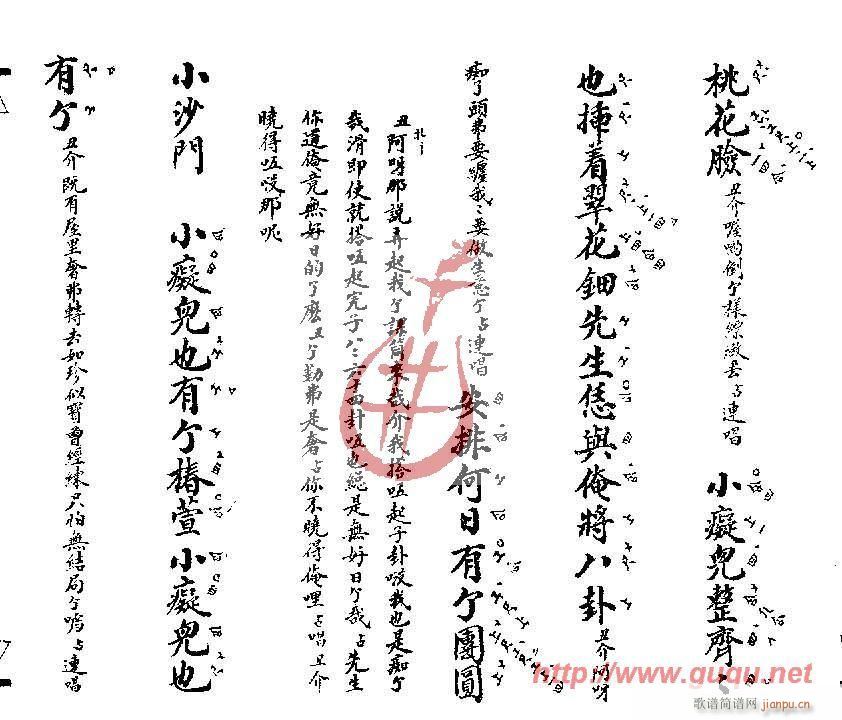 桃花臉 丑介喔喲倒个樣縹緻丟占連唱 小癡兒整齊
也揷着翠花鈿先生恁與俺將八卦 丑介阿呀
痴丫頭弗要纏我〻要做生意个占連唱 安排何日有个團圓
丑阿呀那說弄起我个課筒來哉介我搭㕶起子卦哎我也是痴个
哉滑即使就搭㕶起完子八〻六十四卦㕶也總是無好日个哉占先生
你道俺竟無好日的了麽丑个勤弗是奢占你不曉得俺哩占唱丑介
曉得㕶哎那呢
小沙門 小癡兒也有个椿萱小癡兒也
有个 丑介既有屋里奢弗轉去如珍似寶曾經練只怕無結局个嘘占連唱
http://www.guqu.net
歌谱简谱网
jianpu.cn